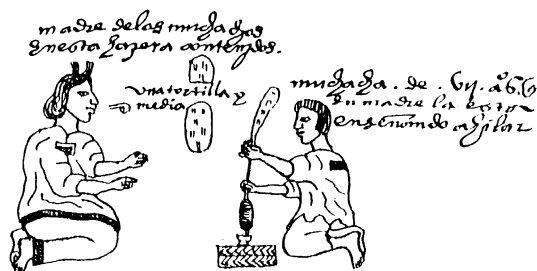 madre de las muchachas
en esta hazera contenidos.
una tortilla y
media
muchacha. de. vij. años q
su madre la esta
enseñando a hilar